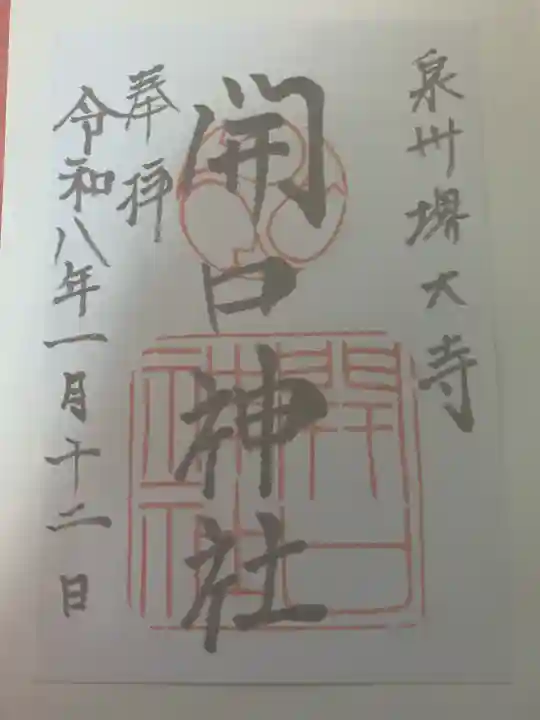 泉州堺大寺
開口神社
奉拝
令和八年一月十二日
開口
神社